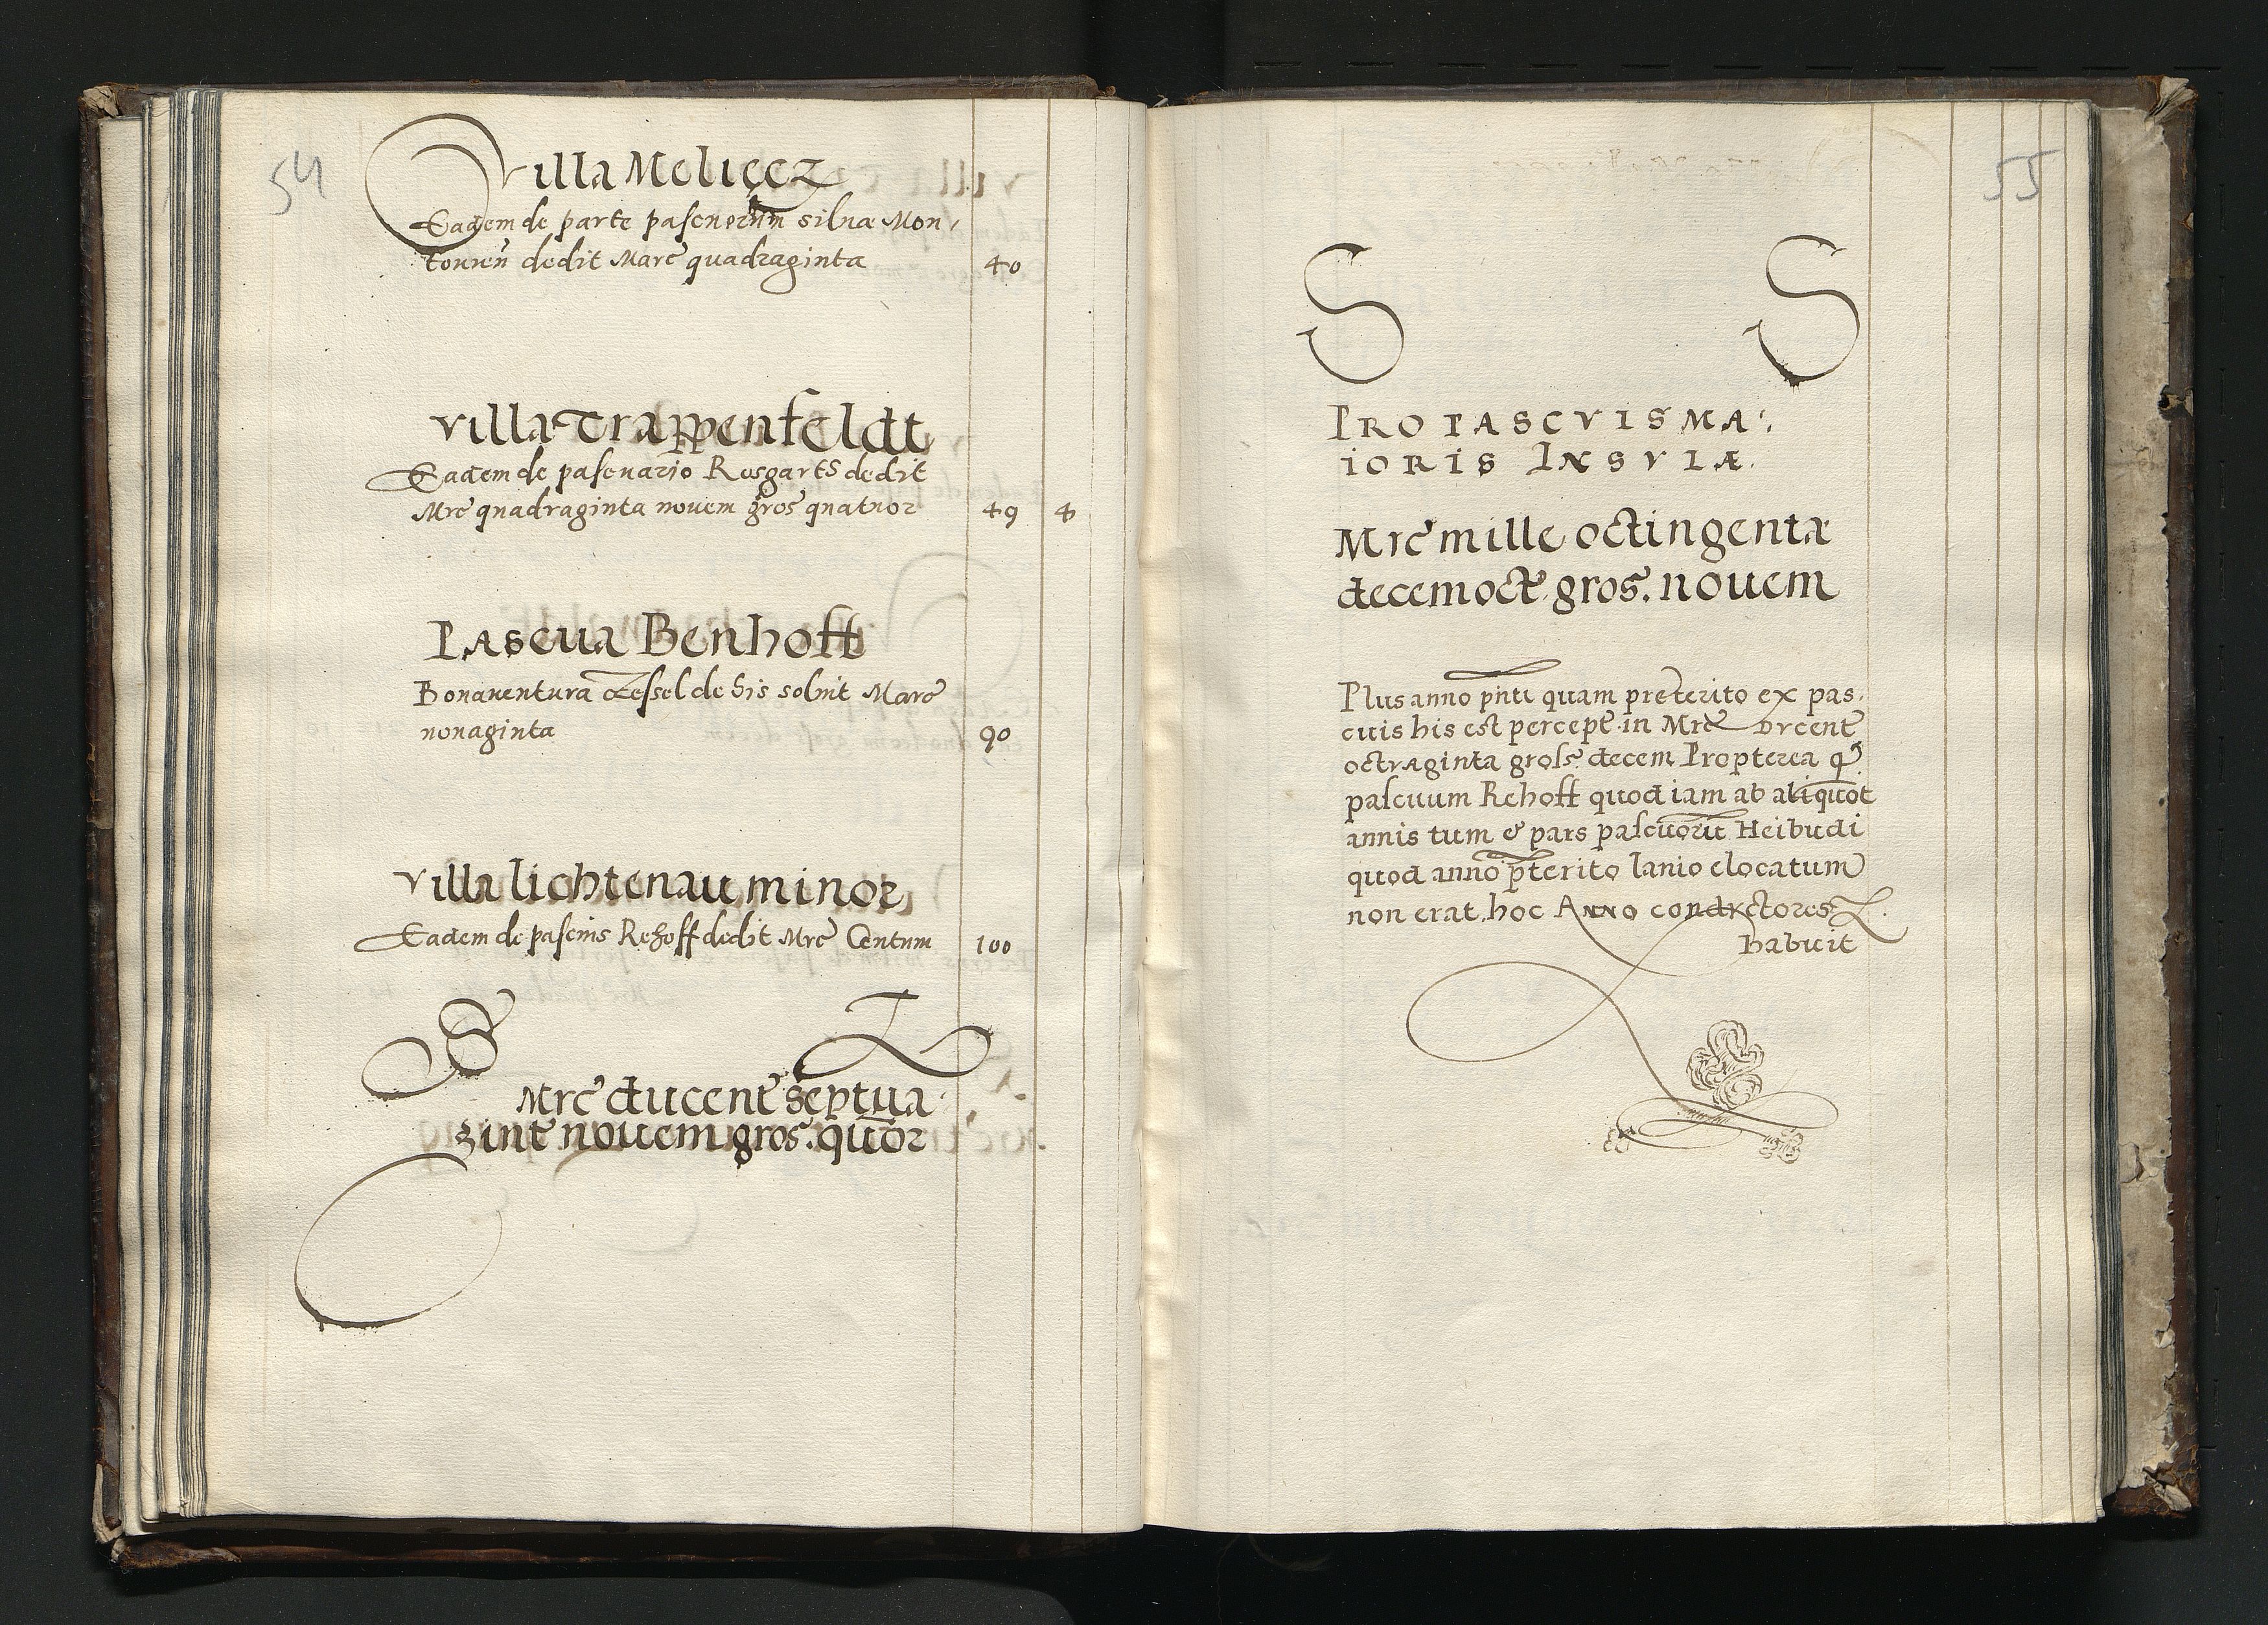 54
Villa Melicez
Eadem de parte pascuorum siluæ Mon,
touien̄ dedit Marc̃ quadraginta 40
Villa Trappenfeldt
Eadem de pascuario Rosgarts dedit
Mrc̃ quadraginta nouem gros̃ quatuor 49 4
Pascua Benhoff
Bonauentura Zessel de his soluit Marc̃
nonaginta 90
Villa lichtenau minor
Eadem de pascuis Rehoff dedit Mrc̃ Centum 100
S L
Mrc̃ ducent̃ septua
gint̃ nouem gros̃. quor̄
55
S S
PRO PASCVIS MA:
IORIS INSVLÆ.
Mrc̃ mille octingenta
decemoct̃ gros̃. nouem
Plus anno pn̄ti quam preterito ex pas,
cuis his est percept̃ in Mrc̃ Dvcent̃
octvaginta gross̃ decem Propterea q̃
pascuum Rehoff quod iam ab aliquot
annis tum & pars pascuorū Heibudi
quod anno p̄terito lanio elocatum
non erat, hoc Anno condvctores
habuit